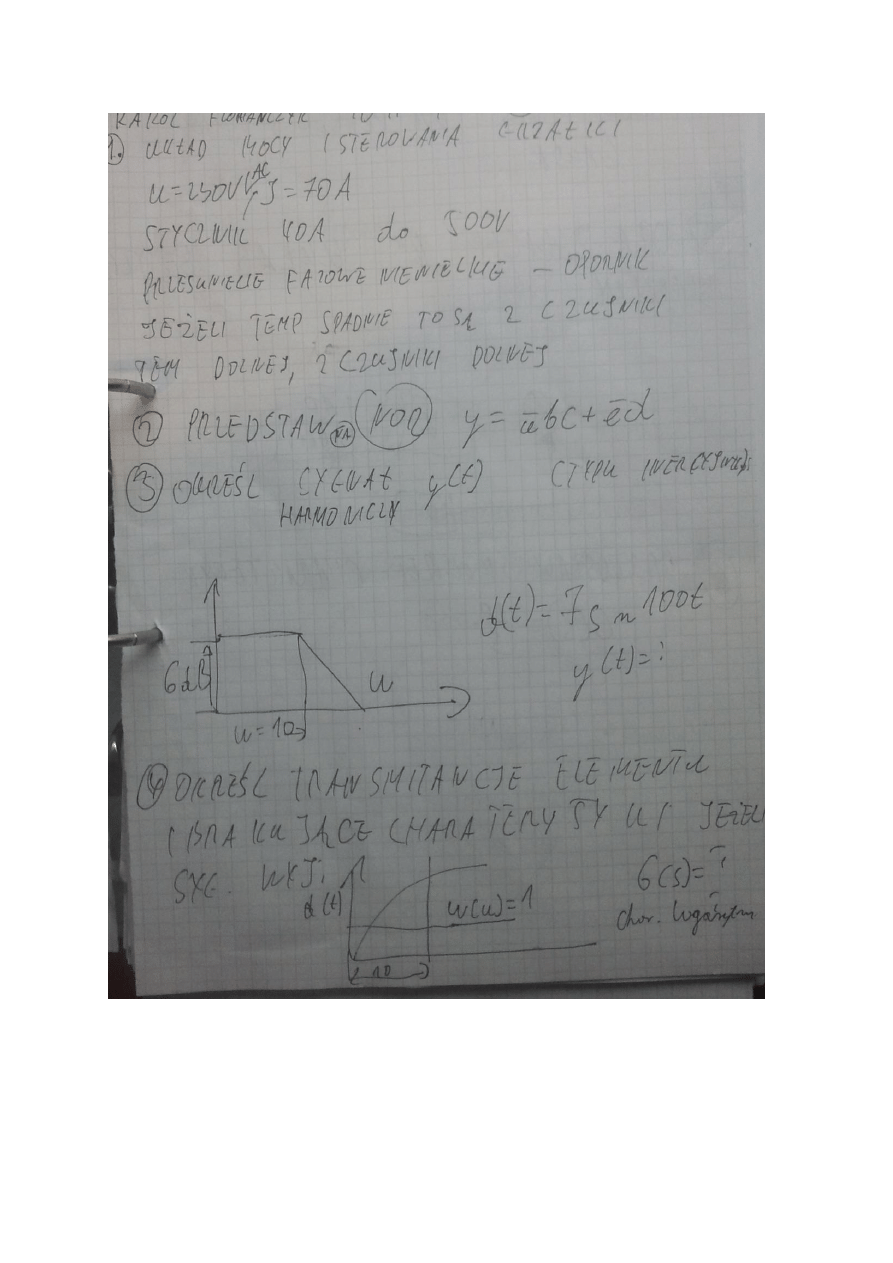 KAROL
1. UKŁAD MOCY I STEROWANIA GRZAŁKI
U=230V AC, J=70A
STYCZNIK 40A do 500V
PRZESUNIĘCIE FAZOWE NIEWIELKIE – OPORNIK
JEŻELI TEMP SPADNIE TO SĄ 2 CZUJNIKI
TEM DOLNEJ, 2 CZUJNIKI DOLNEJ
2 PRZEDSTAW NA NOR y = a̅bc + e̅d
3 OKREŚL SYGNAŁ y(t) (TYPU INERCYJNEGO
HARMONICZY
(t) = 7 sin 100t
y(t)=?
6dB
ω
ω=10
4 OKREŚL TRANSMITANCJE ELEMENTU
I BRAKUJĄCE CHARATERYSTYKI JEŻELI
SYG. WYJ.
G(s)=?
(t)
w(u)=1
char. logarytm
10